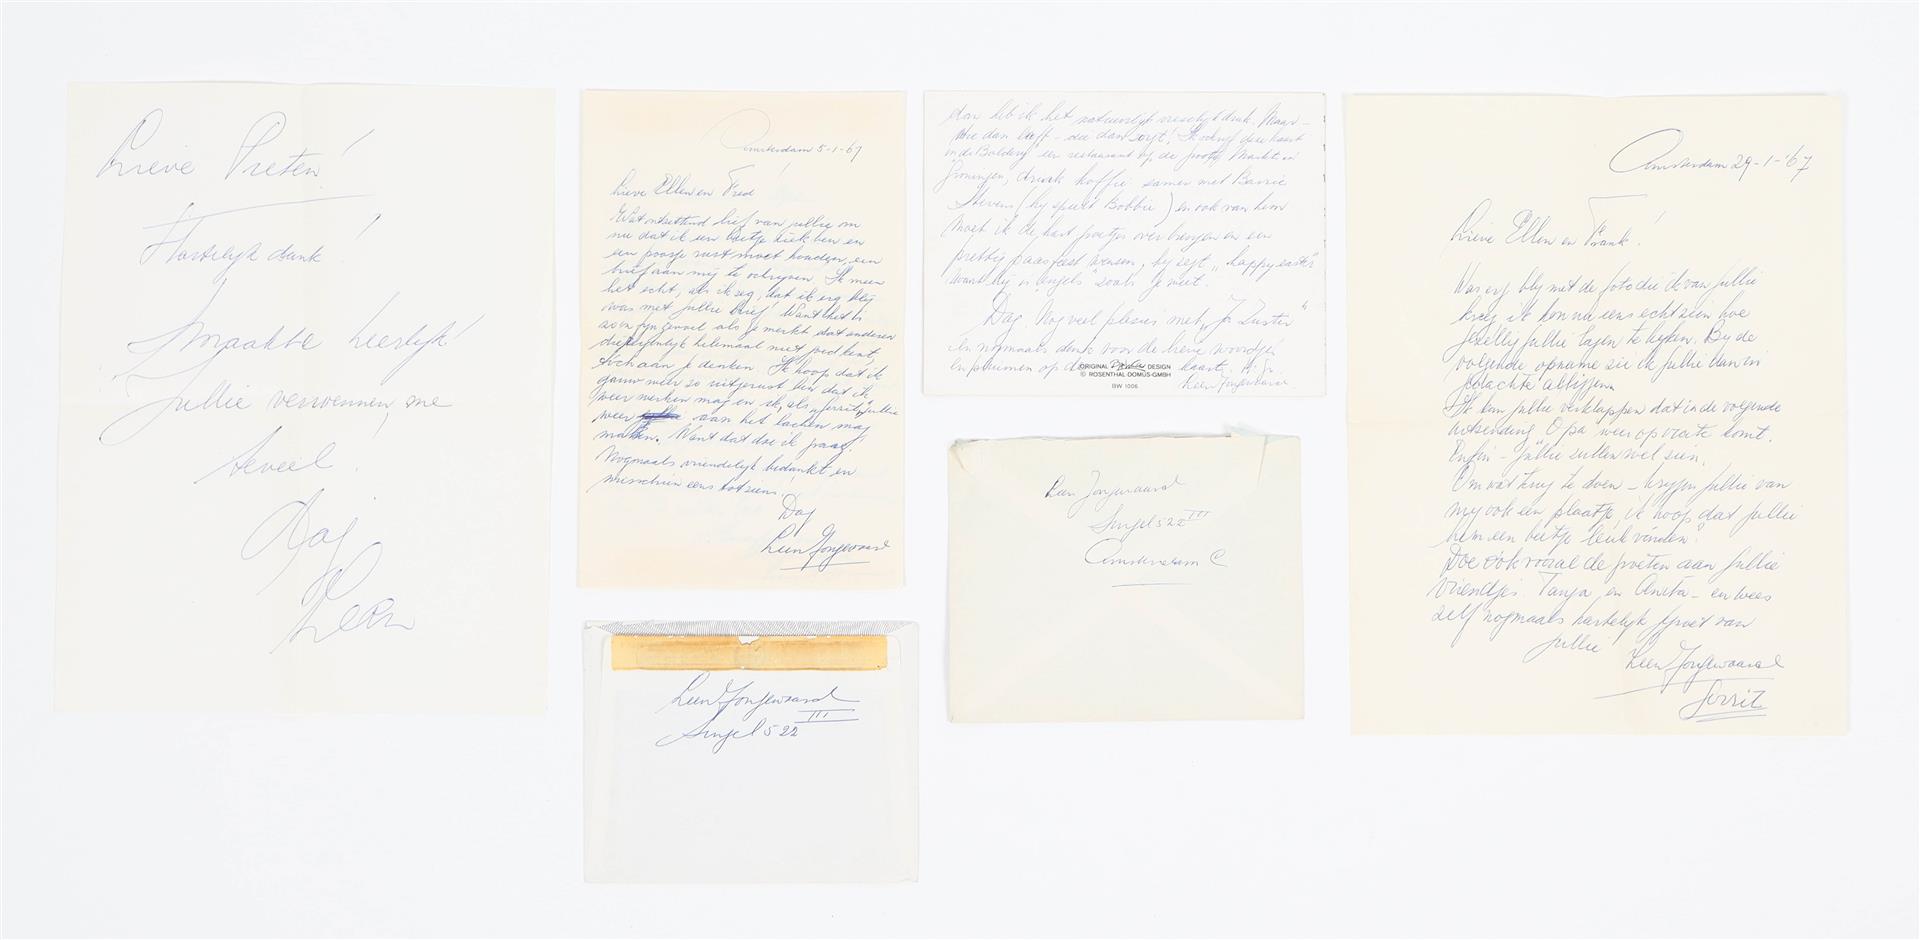 Lieve Preten!
Hartelijk dank!
Smaakte heerlijk!
Jullie verwennen me
teveel.
Dag
Leen
Amsterdam 5-1-67
Lieve Ellen en Fred!
Wat ontzettend lief van jullie om
nu dat ik een beetje ziek ben en
een poosje rust moet houden, een
brief aan mij te schrijven. Ik meen
het echt, als ik zeg, dat ik erg blij
was met jullie brief. Want het is
zo'n fijn gevoel als je merkt dat anderen
die je eigenlijk helemaal niet goed kent,
toch aan je denken. Ik hoop dat ik
gauw weer zo uitgerust ben dat ik
weer werken mag en ik, als "Gerrit", jullie
weer aan het lachen mag
maken. Want dat doe ik graag!
Nogmaals vriendelijk bedankt en
misschien eens tot ziens.
Dag
Leen Jongewaard
Leen Jongewaard
Singel 522 III
dan heb ik het natuurlijk vreselijk druk. Maar -
wie dan leeft - die dan zorgt! Ik schrijf deze kaart
in de "Bolderij" een restaurant bij de grote Markt in
Groningen, drink koffie samen met Barrie
Stevens (hij speelt Bobbie) en ook van hem
moet ik de hart. groetjes overbrengen en een
prettig paasfeest wensen, hij zegt "happy easter"
want hij is "engels" zoals je weet.
Dag. Nog veel plezier met "Ja Zuster"
en nogmaals dank voor de lieve woordjes
en pluimen op de kaart. H. Gr.
Leen Jongewaard.
ORIGINAL DESIGN
© ROSENTHAL DOMUS-GMBH
BW 1006
Leen Jongewaard
Singel 522 III
Amsterdam C
Amsterdam 29-1-'67
Lieve Ellen en Frank!
Was erg blij met de foto die ik van jullie
kreeg ik kon nu eens echt zien hoe
gezellig jullie zaten te kijken. Bij de
volgende opname zie ik jullie dan in
gedachte
Ik kan jullie verklappen dat in de volgende
uitzending "Opa" weer op komt.
Enfin - jullie zullen wel zien.
Om wat terug te doen - krijgen jullie van
mij ook een plaatje, ik hoop dat jullie
hem een beetje leuk vinden.
Doe ook vooral de groeten aan jullie
vriendjes. Tanja en Anita - en wees
zelf nogmaals hartelijk gegroet van
jullie Leen Jongewaard
Gerrit